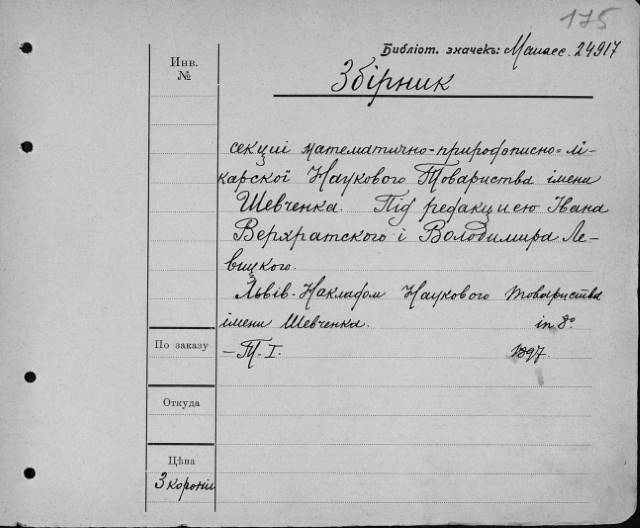 175
Библіот. значекъ: Манасс. 24917
Инв.
№
Збірник
секциї математично-природописно-лї-
карскої Наукового Товариства імени
Шевченка. Під редакциєю Івана
Верхратского і Володимира Ле-
вицкого.
Львів. Накладом Наукового Товариства
імени Шевченка. in 8º
По заказу
— Т. I. 1897.
Откуда
Цѣна
3 корони